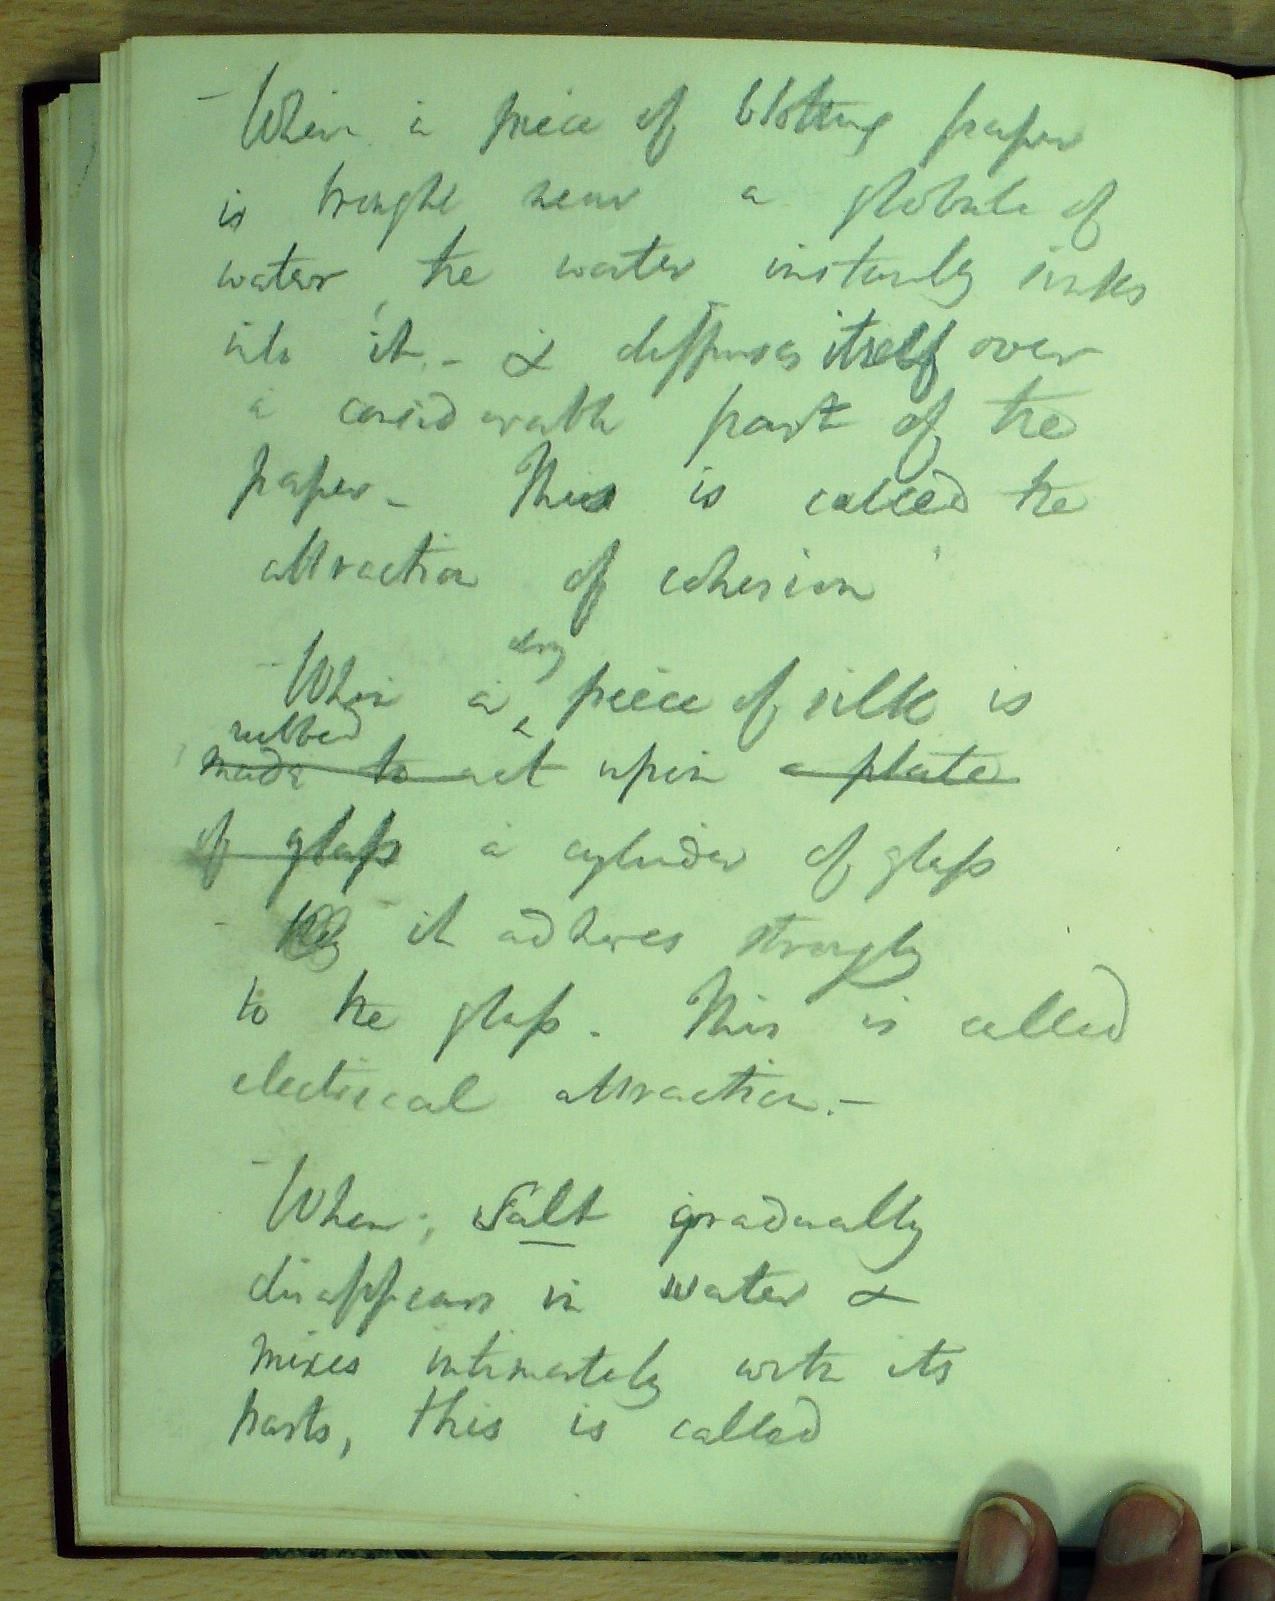 - When a piece of blotting paper
is brought near a globule of
water, the water instantly sinks
into it. - & diffuses itself over
a considerable part of the
paper - This is called the
attraction of cohesion
dry
- When a ‸ piece of silk is
rubbed
made to act upon a plate
of glaſs a cylinder of glaſs
- it adheres strongly
to the glaſs. This is called
electrical attraction. -
- When, Salt gradually
disappears in water &
mixes intimately with its
parts, this is called